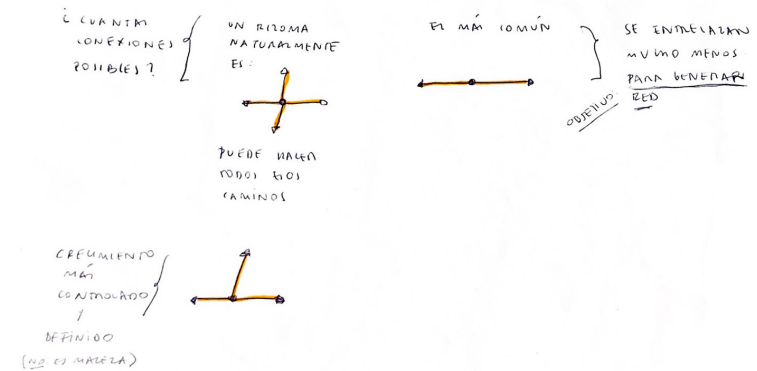 ¿ CUANTAS
CONEXIONES
POSIBLES ?
UN RIZOMA
NATURALMENTE
ES:
PUEDE HACER
TODOS LOS
CAMINOS
EL MÁS COMÚN
SE ENTRELAZAN
MUCHO MENOS
PARA GENERAR
RED
OBJETIVO:
CRECIMIENTO
MÁS
CONTROLADO
Y
DEFINIDO
(NO ES MALEZA)